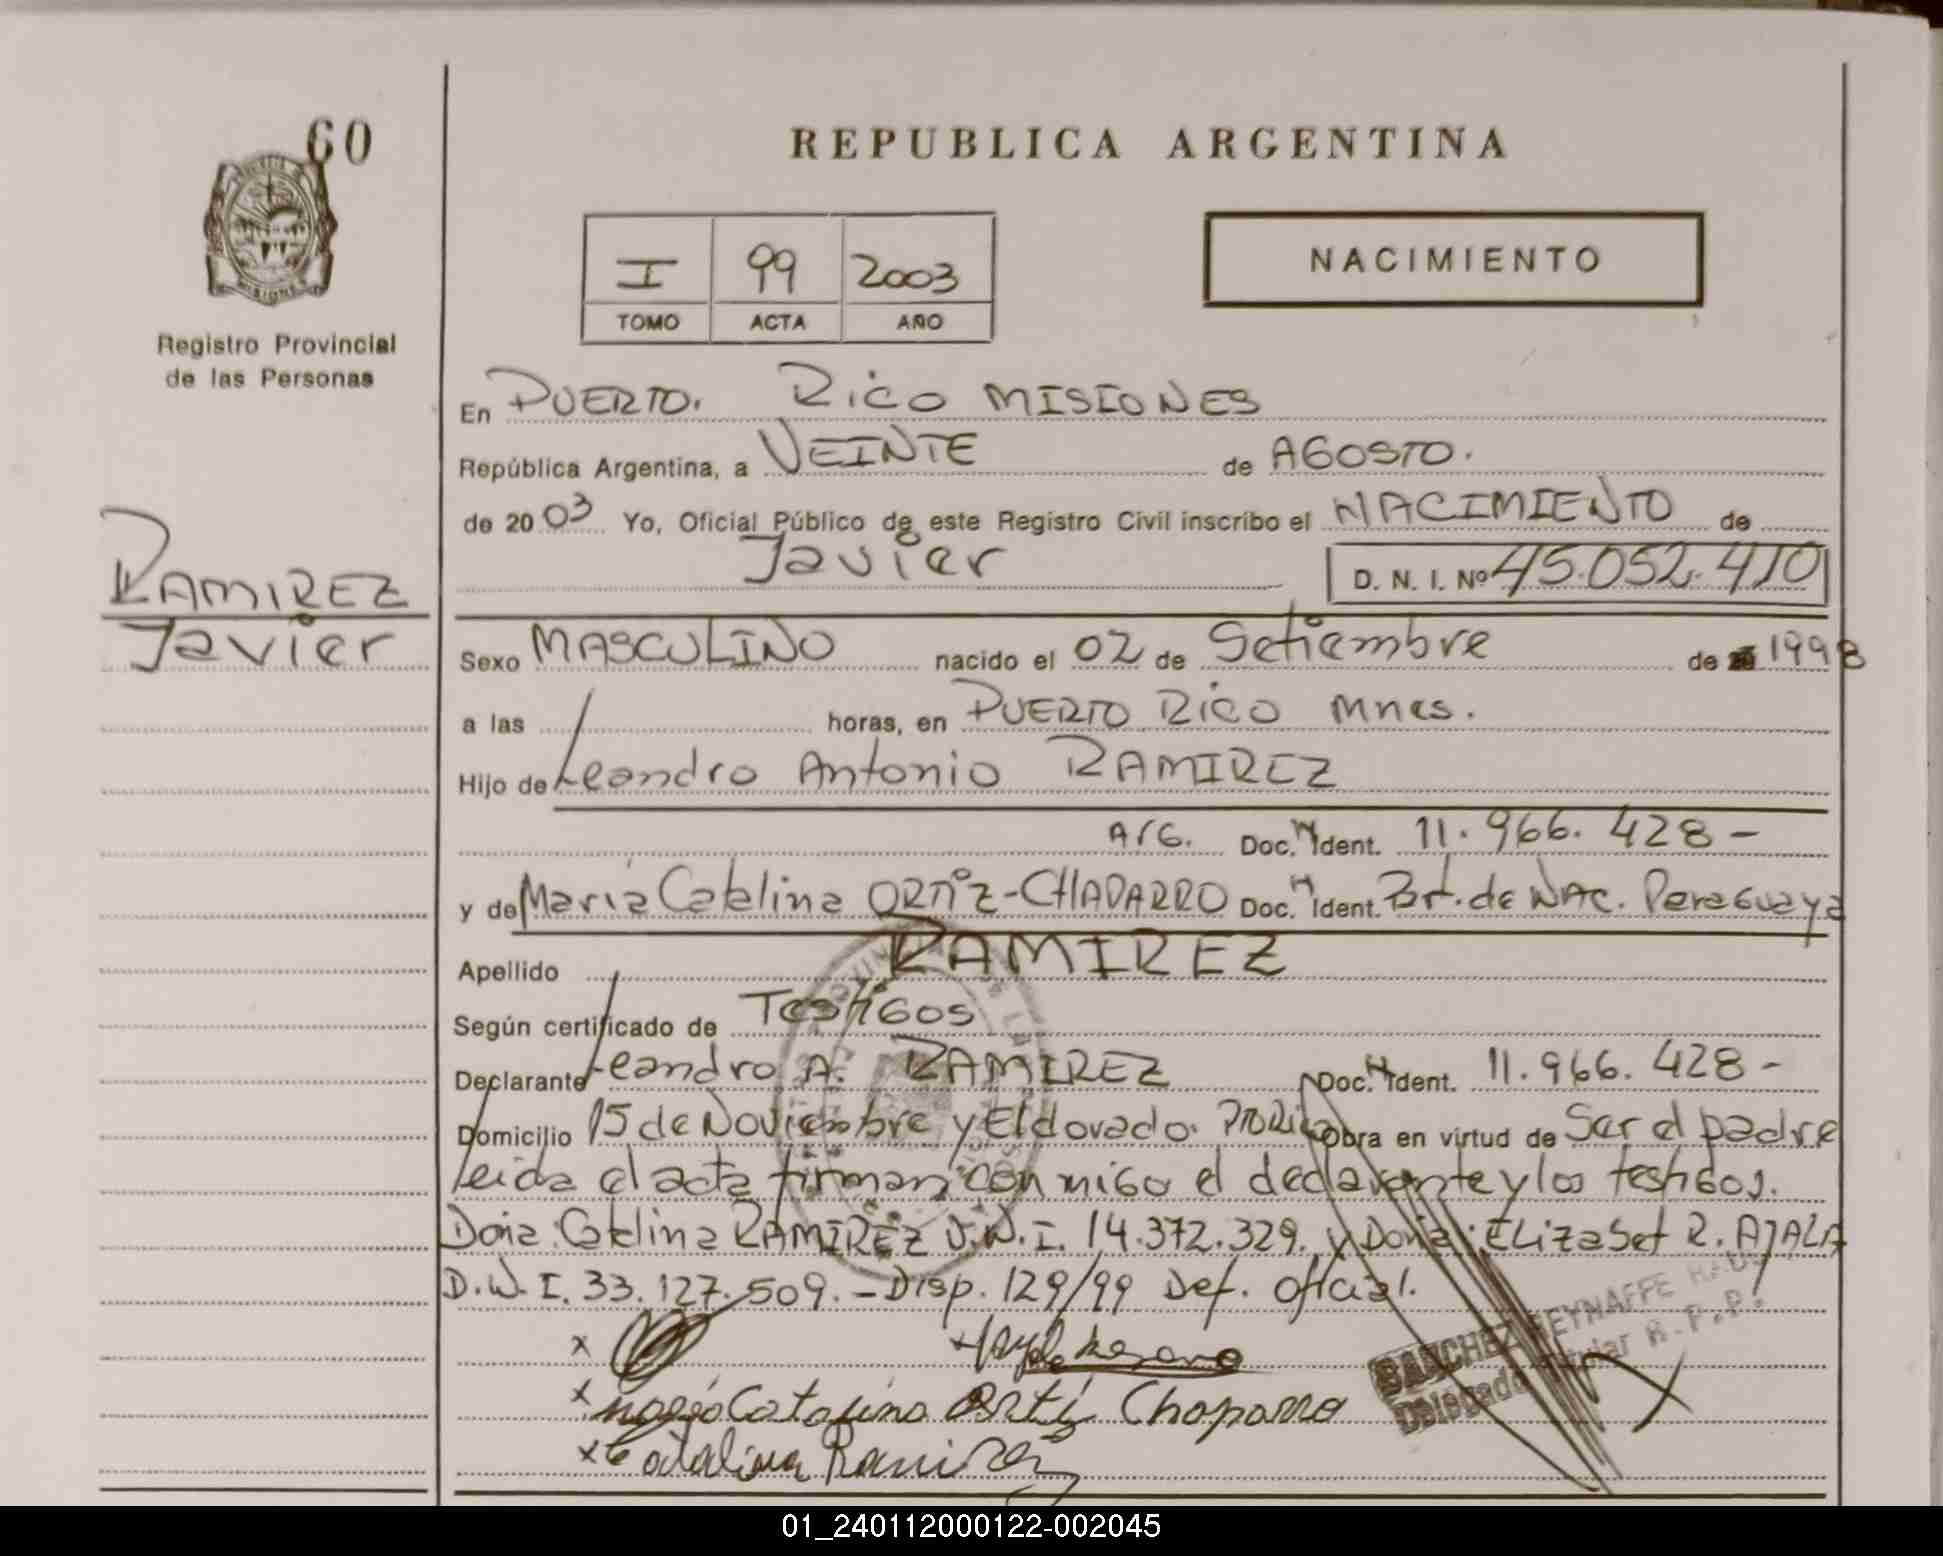 60
REPUBLICA ARGENTINA
NACIMIENTO
I 99 2003
TOMO ACTA AÑO
MISIONES
Registro Provincial
de las Personas
En PUERTO. Rico MISIONES
República Argentina, a VEINTE de AGOSTO.
de 2003 Yo, Oficial Público de este Registro Civil inscribo el NACIMIENTO de
Javier D. N. I. Nº 45.052.410
RAMIREZ
Javier
Sexo MASCULINO nacido el 02 de Setiembre de 1998
a las horas, en PUERTO Rico Mnes.
Hijo de Leandro Antonio RAMIREZ
Arg. Doc. Ident. 11.966.428-
y de María Catalina ORTIZ-CHAPARRO Doc. Ident. de NAC. Paraguaya
Apellido RAMIREZ
Según certificado de Testigos
Declarante Leandro A. RAMIREZ Doc. Ident. 11.966.428-
Domicilio 15 de Noviembre y Eldorado. obra en virtud de Ser el padre
leida el acta firman conmigo el declarante y los testigos.
Doña: Catalina RAMIREZ D.N.I. 14.372.329. y Doña: ELizabet R. AJALA
D.N.I. 33.127.509. - Disp. 129/99 Def. oficial.
x
SANCHEZ REYNAFFE
Delegado Titular R.P.P.
x Maria Catalina Ortiz Chaparro
x Catalina Ramirez
01_240112000122-002045